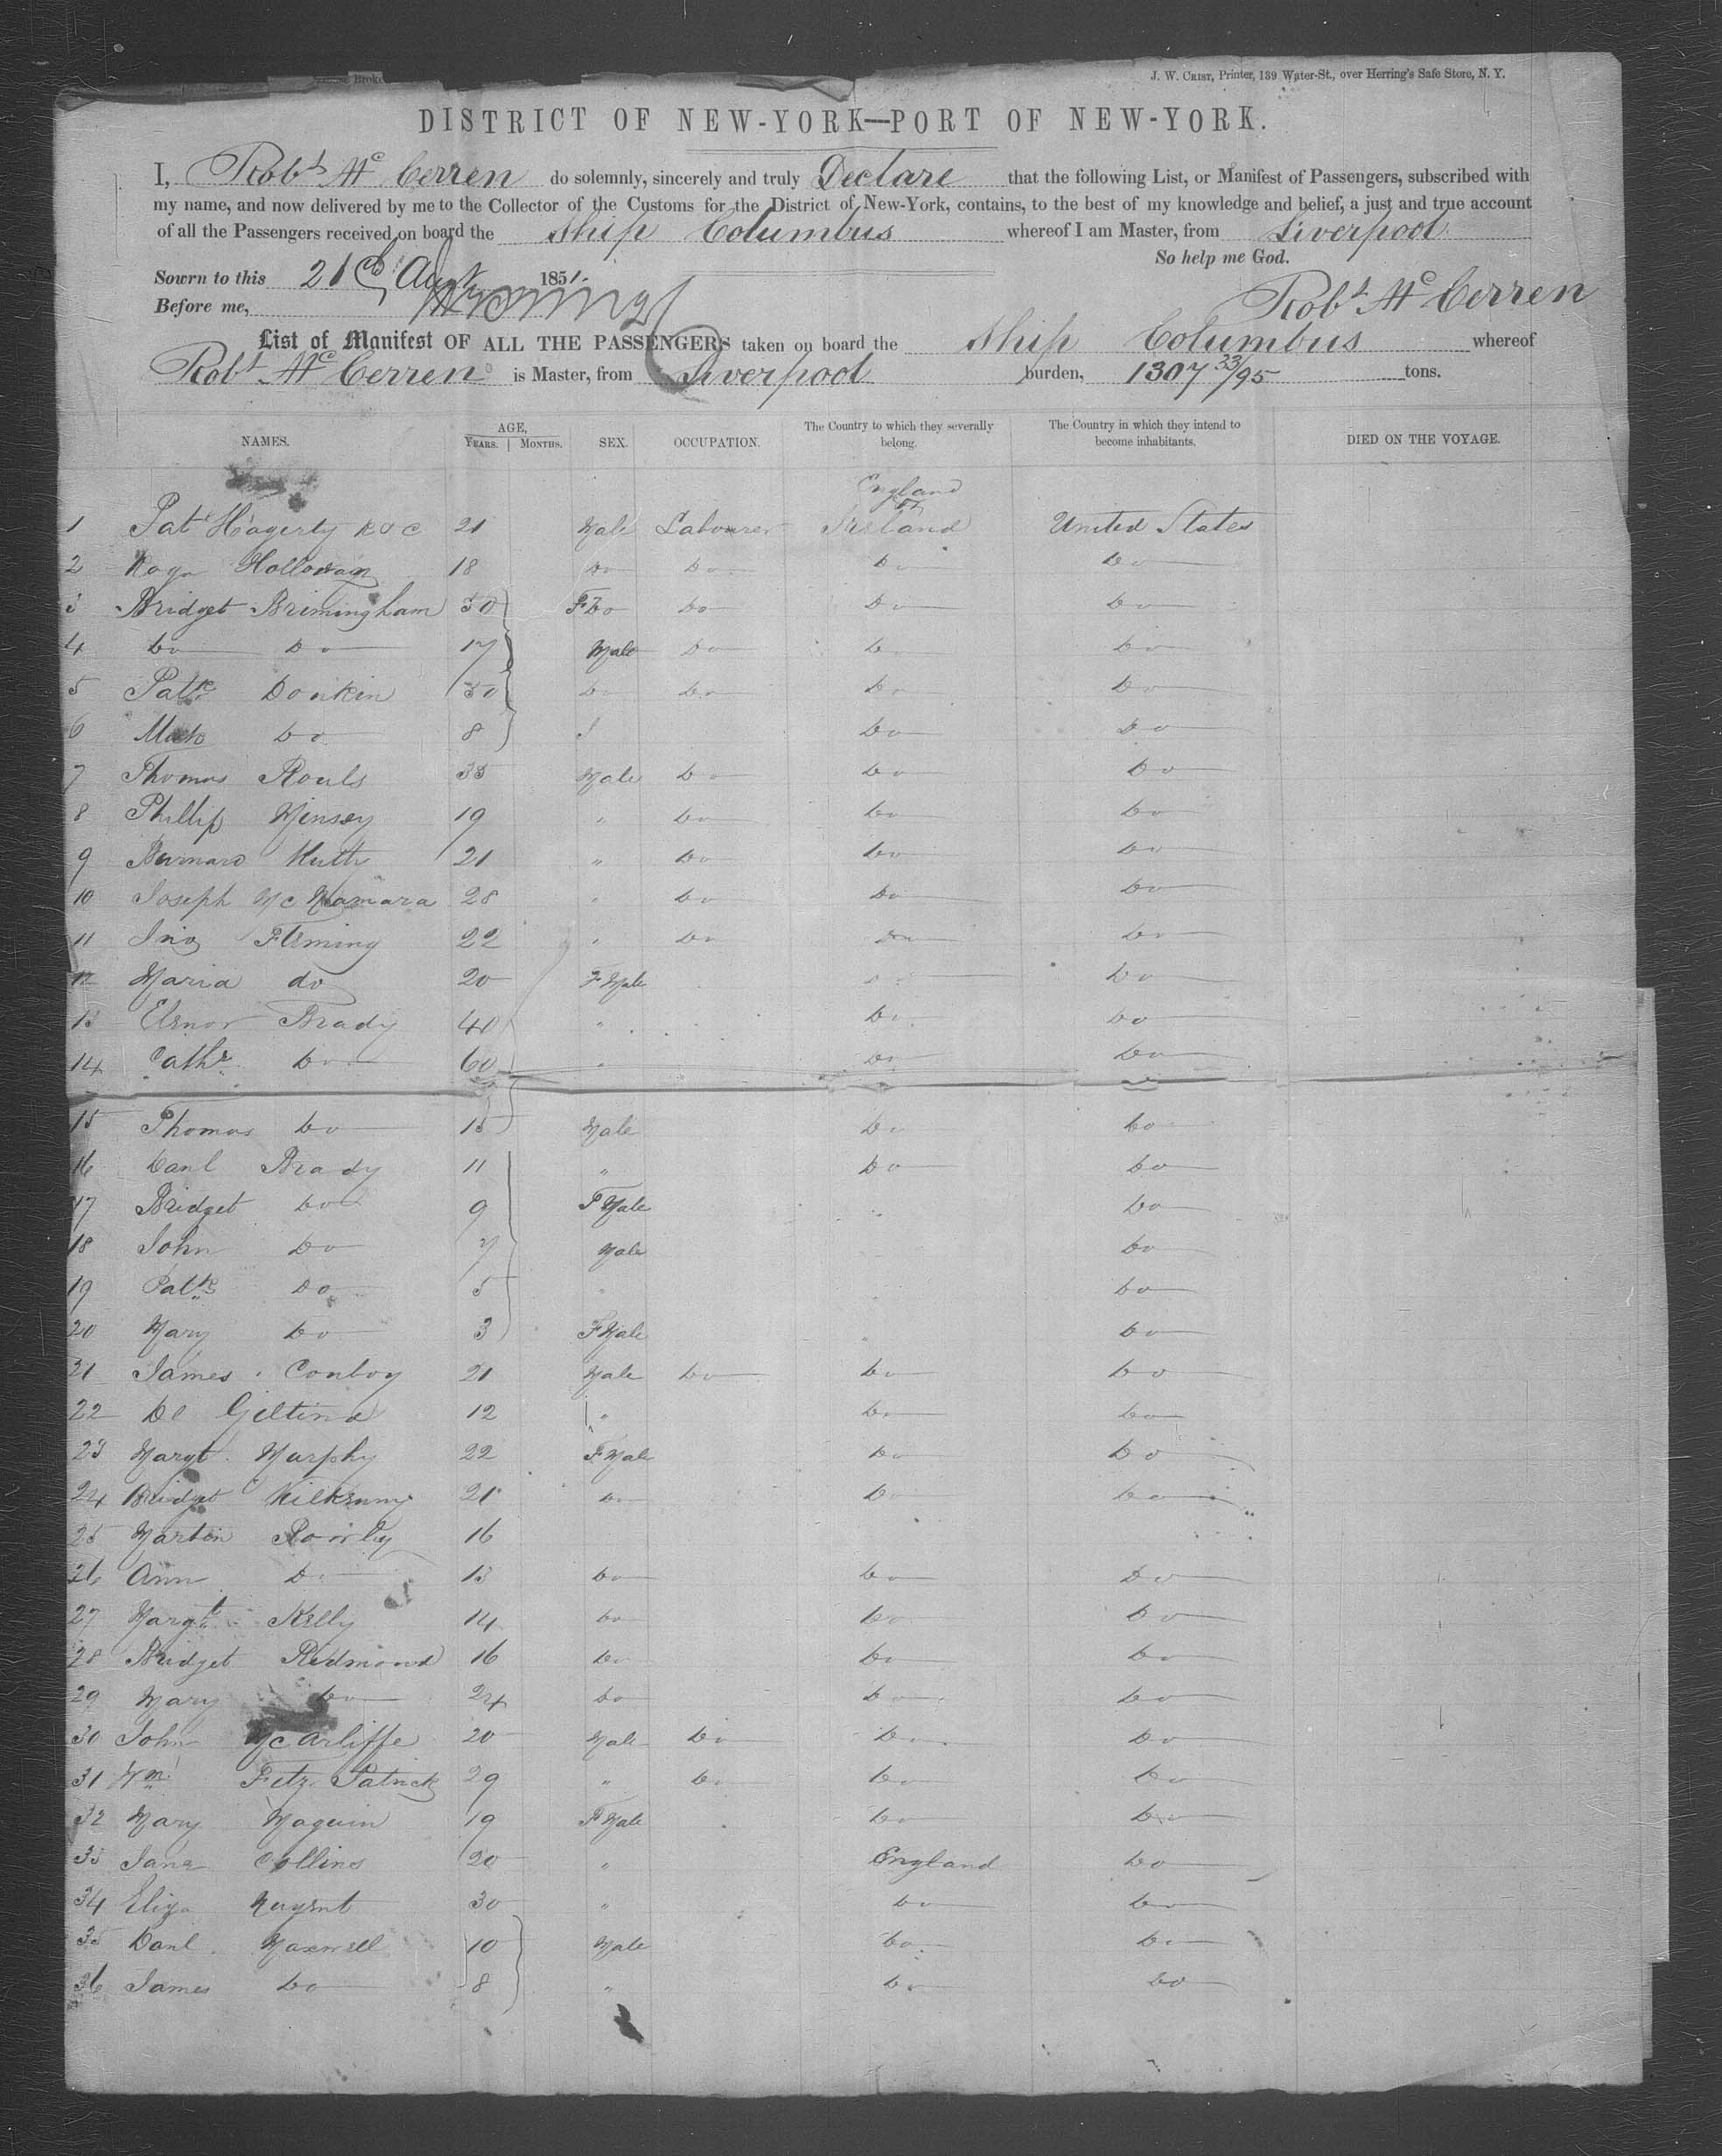 J. W. Crist, Printer, 139 Water-St., over Herring's Safe Store, N. Y.
DISTRICT OF NEW-YORK—PORT OF NEW-YORK.
I, Robt Mc Cerren do solemnly, sincerely and truly Declare that the following List, or Manifest of Passengers, subscribed with
my name, and now delivered by me to the Collector of the Customs for the District of New-York, contains, to the best of my knowledge and belief, a just and true account
of all the Passengers received on board the Ship Columbus whereof I am Master, from Liverpool
So help me God.
Sworn to this 21 Augt 1851
Robt Mc Cerren
Before me,
List of Manifest OF ALL THE PASSENGERS taken on board the Ship Columbus whereof
Robt Mc Cerren is Master, from Liverpool burden, 1307 33/95 tons.
NAMES. AGE, YEARS. MONTHS. SEX. OCCUPATION. The Country to which they severally belong. The Country in which they intend to become inhabitants. DIED ON THE VOYAGE.
England or
1 Pat Hagerty 21 Male Labourer Ireland United States
2 18 Do Do Do Do
3 Bridget Brimingham 50 F Do Do Do Do
4 Do Do 17 Male Do Do Do
5 Patk Donkin 50 Do Do Do Do
6 Do 8 Do Do
7 Thomas Rouls 35 Male Do Do Do
8 Phillip Minsey 19 " Do Do Do
9 Barnard 21 " Do Do Do
10 Joseph Mc Namara 28 " Do Do Do
11 Jno Fleming 22 " Do Do Do
12 Maria do 20 F Male Do
13 Elenor Brady 40 " Do Do
14 Cathe Do 60 " Do Do
15 Thomas Do 15 Male Do Do
16 Danl Brady 11 " Do Do
17 Bridget Do 9 F Male Do
18 John Do 7 Male Do
19 Patk Do 5 " Do
20 Mary Do 3 F Male Do
21 James Conboy 21 Male Do Do Do
22 12 " Do Do
23 Margt Murphy 22 F Male Do Do
24 Bridget Kilkenny 21 Do Do Do
25 Martin 16
26 Ann Do 13 Do Do Do
27 Margt Kelly 14 Do Do Do
28 Bridget Redmond 16 Do Do Do
29 Mary Do 24 Do Do Do
30 John McArliffe 20 Male Do Do Do
31 Wm Fitz Patrick 29 " Do Do Do
32 Mary Maguin 19 F Male Do Do
33 Jane Collins 20 " England Do
34 Eliza Nugent 30 " Do Do
35 Danl Maxwell 10 Male Do Do
36 James Do 8 " Do Do